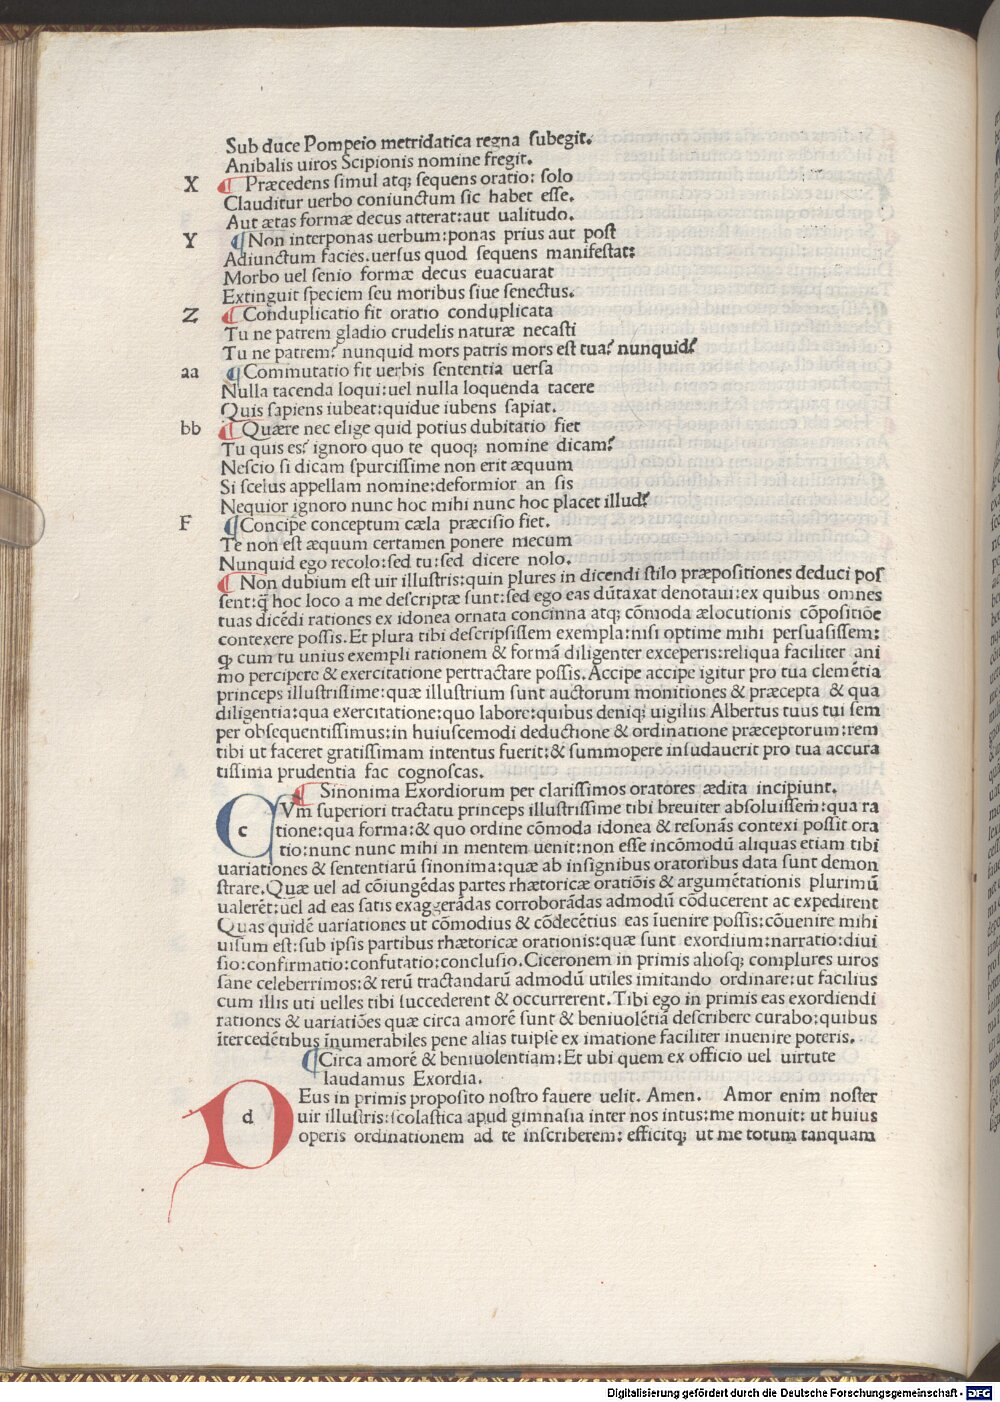 Sub duce Pompeio metridatica regna subegit.
Anibalis uiros Scipionis nomine fregit.
X ¶ Præcedens simul atq; sequens oratio: solo
Clauditur uerbo coniunctum sic habet esse.
Aut ætas formæ decus atterat:aut ualitudo.
Y ¶ Non interponas uerbum:ponas prius aut post
Adiunctum facies.uersus quod sequens manifestat:
Morbo uel senio formæ decus euacuarat
Extinguit speciem seu moribus siue senectus.
Z ¶ Conduplicatio fit oratio conduplicata
Tu ne patrem gladio crudelis naturæ necasti
Tu ne patrem? nunquid mors patris mors est tua? nunquid?
aa ¶ Commutatio fit uerbis sententia uersa
Nulla tacenda loqui:uel nulla loquenda tacere
Quis sapiens iubeat:quidue iubens sapiat.
bb ¶ Quære nec elige quid potius dubitatio fiet
Tu quis es? ignoro quo te quoq; nomine dicam?
Nescio si dicam spurcissime non erit æquum
Si scelus appellam nomine:deformior an sis
Nequior ignoro nunc hoc mihi nunc hoc placet illud?
F ¶ Concipe conceptum cæla præcisio fiet.
Te non est æquum certamen ponere mecum
Nunquid ego recolo:sed tu:sed dicere nolo.
¶ Non dubium est uir illustris:quin plures in dicendi stilo præpositiones deduci pos
sent:q̃ hoc loco a me descriptæ sunt:sed ego eas dũtaxat denotaui:ex quibus omnes
tuas dicẽdi rationes ex idonea ornata concinna atq; cõmoda ælocutionis cõpositiõe
contexere possis.Et plura tibi descripsissem exempla:nisi optime mihi persuasissem:
q; cum tu unius exempli rationem & formã diligenter exceperis:reliqua faciliter ani
mo percipere & exercitatione pertractare possis.Accipe accipe igitur pro tua clemẽtia
princeps illustrissime:quæ illustrium sunt auctorum monitiones & præcepta & qua
diligentia:qua exercitatione:quo labore:quibus deniq; uigiliis Albertus tuus tui sem
per obsequentissimus:in huiuscemodi deductione & ordinatione præceptorum:rem
tibi ut faceret gratissimam intentus fuerit:& summopere insudauerit pro tua accura
tissima prudentia fac cognoscas.
¶ Sinonima Exordiorum per clarissimos oratores ædita incipiunt.
CVm superiori tractatu princeps illustrissime tibi breuiter absoluissem:qua ra
tione:qua forma:& quo ordine cõmoda idonea & resonãs contexi possit ora
tio:nunc nunc mihi in mentem uenit:non esse incõmodũ aliquas etiam tibi
uariationes & sententiarũ sinonima:quæ ab insignibus oratoribus data sunt demon
strare.Quæ uel ad cõiungẽdas partes rhætoricæ oratiõis & argumẽtationis plurimũ
ualerẽt:uel ad eas satis exaggerãdas corroborãdas admodũ cõducerent ac expedirent
Quas quidẽ uariationes ut cõmodius & cõdecẽtius eas ĩuenire possis:cõuenire mihi
uisum est:sub ipsis partibus rhætoricæ orationis:quæ sunt exordium:narratio:diui
sio:confirmatio:confutatio:conclusio.Ciceronem in primis aliosq; complures uiros
sane celeberrimos:& rerũ tractandarũ admodũ utiles imitando ordinare:ut facilius
cum illis uti uelles tibi succederent & occurrerent.Tibi ego in primis eas exordiendi
rationes & uariatiões quæ circa amorẽ sunt & beniuolẽtiã describere curabo:quibus
ĩtercedẽtibus ĩnumerabiles pene alias tuipse ex imatione faciliter inuenire poteris.
¶ Circa amorẽ & beniuolentiam:Et ubi quem ex officio uel uirtute
laudamus Exordia.
DEus in primis proposito nostro fauere uelit. Amen. Amor enim noster
uir illustris:scolastica apud gimnasia inter nos intus:me monuit: ut huius
operis ordinationem ad te inscriberem: efficitq; ut me totum tanquam
Digitalisierung gefördert durch die Deutsche Forschungsgemeinschaft - DFG